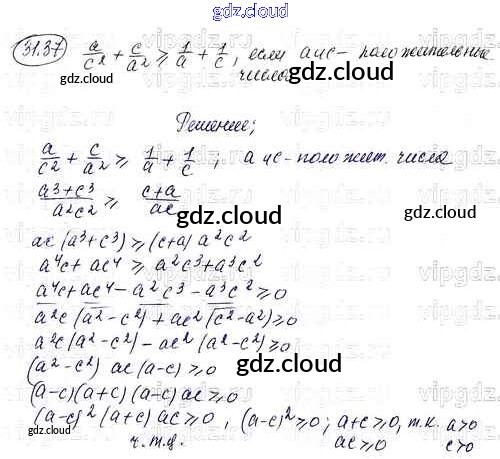 gdz.cloud
31.37 a/c² + c/a² ≥ 1/a + 1/c, если а и с - положительные
числа
gdz.cloud
gdz.cloud
Решение;
a/c² + c/a² ≥ 1/a + 1/c; а и с - полож. числа
gdz.cloud
(a³+c³)/(a²c²) ≥ (c+a)/(ac)
gdz.cloud
ac(a³+c³) ≥ (c+a) a²c²
a⁴c + ac⁴ ≥ a²c³ + a³c²
gdz.cloud
a⁴c + ac⁴ - a²c³ - a³c² ≥ 0
a²c(a²-c²) + ac²(c²-a²) ≥ 0
gdz.cloud
a²c(a²-c²) - ac²(a²-c²) ≥ 0
(a²-c²) ac(a-c) ≥ 0
gdz.cloud
(a-c)(a+c)(a-c) ac ≥ 0
(a-c)²(a+c) ac ≥ 0, (a-c)² ≥ 0; a+c ≥ 0, т.к. a>0
ч.т.д. ac ≥ 0 c>0
gdz.cloud